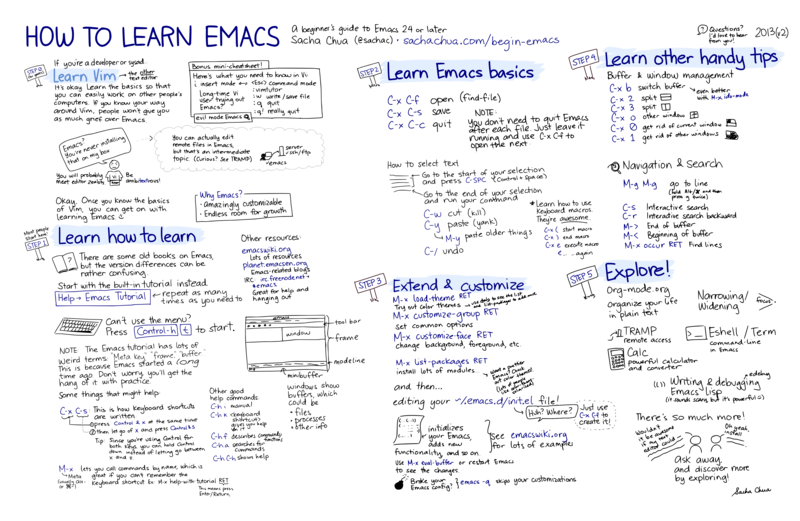 HOW TO LEARN EMACS
A beginner's guide to Emacs 24 or later
Sacha Chua (@sachac) · sachachua.com/begin-emacs
Questions?
I'd love to hear
from you!
2013(v2)
STEP 0
If you're a developer or sysad...
Learn Vim → the other
text editor
It's okay. Learn the basics so that
you can easily work on other people's
computers. If you know your way
around Vim, people won't give you
as much grief over Emacs.
Bonus mini-cheatsheet!
Here's what you need to know in Vi:
i insert mode <Esc> command mode
Long-time Vi
user trying out
Emacs?
:vimtutor
:w write/save file
:q quit
:q! really quit
evil mode Emacs
Emacs?
You're never installing
that on my box
You can actually edit
remote files in Emacs,
but that's an intermediate
topic. (Curious? See TRAMP)
server
ssh/ftp
emacs
You will probably
meet editor zealots
Be
ambitextrous!
Okay. Once you know the basics
of Vim, you can get on with
learning Emacs
Why Emacs?
· amazingly customizable
· Endless room for growth
Most people
start here
STEP 1
Learn how to learn
There are some old books on Emacs,
but the version differences can be
rather confusing.
Start with the built-in tutorial instead.
Help → Emacs Tutorial
repeat as many
times as you need to
Other resources:
emacswiki.org
Lots of resources
planet.emacsen.org
Emacs-related blogs
IRC: irc.freenode.net
#emacs
Great for help and
hanging out
Can't use the menu?
Press Control-h t to start.
NOTE: The Emacs tutorial has lots of
weird terms: "Meta key" "frame" "buffer"
This is because Emacs started a long
time ago. Don't worry, you'll get the
hang of it with practice.
window
tool bar
frame
modeline
minibuffer
windows show
buffers, which
could be:
· files
· processes
· other info
Some things that might help:
C-x C-s This is how keyboard shortcuts
are written.
press Control & x at the same time
then let go of x and press Control & s
Tip: Since you're using Control for
both keys, you can hold Control
down instead of letting go between
x and s
M-x lets you call commands by name, which is
great if you can't remember the
keyboard shortcut. Ex: M-x help-with-tutorial RET
Meta
This means press
Enter/Return.
Other good
help commands
C-h i manual
C-h k keyboard
shortcut;
gives you help
C-h f describes commands
C-h a searches for
commands
C-h C-h shows help
STEP 2
Learn Emacs basics
C-x C-f open (find-file)
C-x C-s save
C-x C-c quit
NOTE:
You don't need to quit Emacs
after each file. Just leave it
running and use C-x C-f to
open the next
How to select text
Go to the start of your selection
and press C-SPC (Control + Space)
Go to the end of your selection
and run your command
C-w cut (kill)
C-y paste (yank)
M-y paste older things
C-/ undo
Learn how to use
Keyboard macros.
They're awesome.
C-x ( start macro
C-x ) end macro
C-x e execute macro
e... again
STEP 3
Extend & customize
M-x load-theme RET
Try out color themes
use <tab> to see the list
use list-packages to add more
M-x customize-group RET
Set common options
M-x customize-face RET
change background, foreground, etc.
M-x list-packages RET
install lots of modules
and then...
editing your ~/.emacs.d/init.el file!
Huh? Where?
Just use
C-x C-f to
create it!
initializes
your Emacs,
adds new
functionality, and so on
See emacswiki.org
for lots of examples
Use M-x eval-buffer or restart Emacs
to see the changes.
Broke your
Emacs config?
emacs -q skips your customizations
STEP 4
Learn other handy tips
Buffer & window management
C-x b switch buffer
even better
with M-x ido-mode
C-x 2 split
C-x 3 split
C-x o other window
C-x 0 get rid of current window
C-x 1 get rid of other windows
Navigation & Search
M-g M-g go to line
C-s Interactive search
C-r Interactive search backward
M-> End of buffer
M-< Beginning of buffer
M-x occur RET Find lines
STEP 5
Explore!
Org-mode.org
Organize your life
in plain text
Narrowing/
Widening
focus
TRAMP
remote access
Eshell / Term
command-line
in Emacs
Calc
powerful calculator
and converter
editing
Writing & debugging
Emacs Lisp
(it sounds scary, but it's powerful)
There's so much more!
Wouldn't
it be awesome
if my text
editor could...
Oh yeah,
it does!
Ask away
and discover more
by exploring!
Sacha Chua